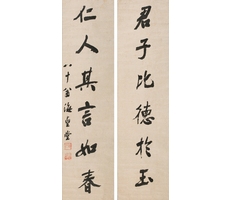 君子比德於玉
仁人其言如春
八十